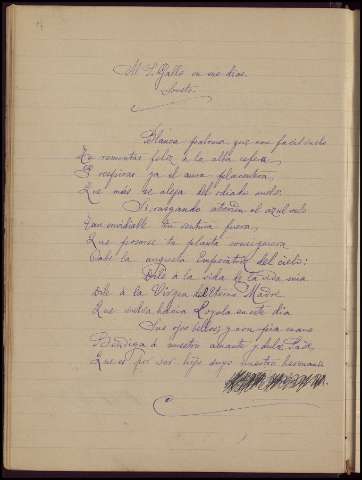 Al P. Gallo en sus dias.
Soneto.
Blanca paloma, que con facil vuelo
Te remontas feliz á la alta esfera,
Y respiras ya el aura placentera,
Que más te aleja del odiado suelo:
Si rasgando atenta el azul velo
Tan envidiable tu ventura fuera,
Que posarse tu planta consiguiera
Cabe la augusta Emperatriz del cielo:
Dile á la vida de la vida mia
Dile á la Virgen del Eterno Madre
Que vuelva hácia Loyola en este dia
Sus ojos bellos, y con pia mano
Bendiga á nuestro amante y dulce Padre
Que es por ser hijo suyo nuestro hermano